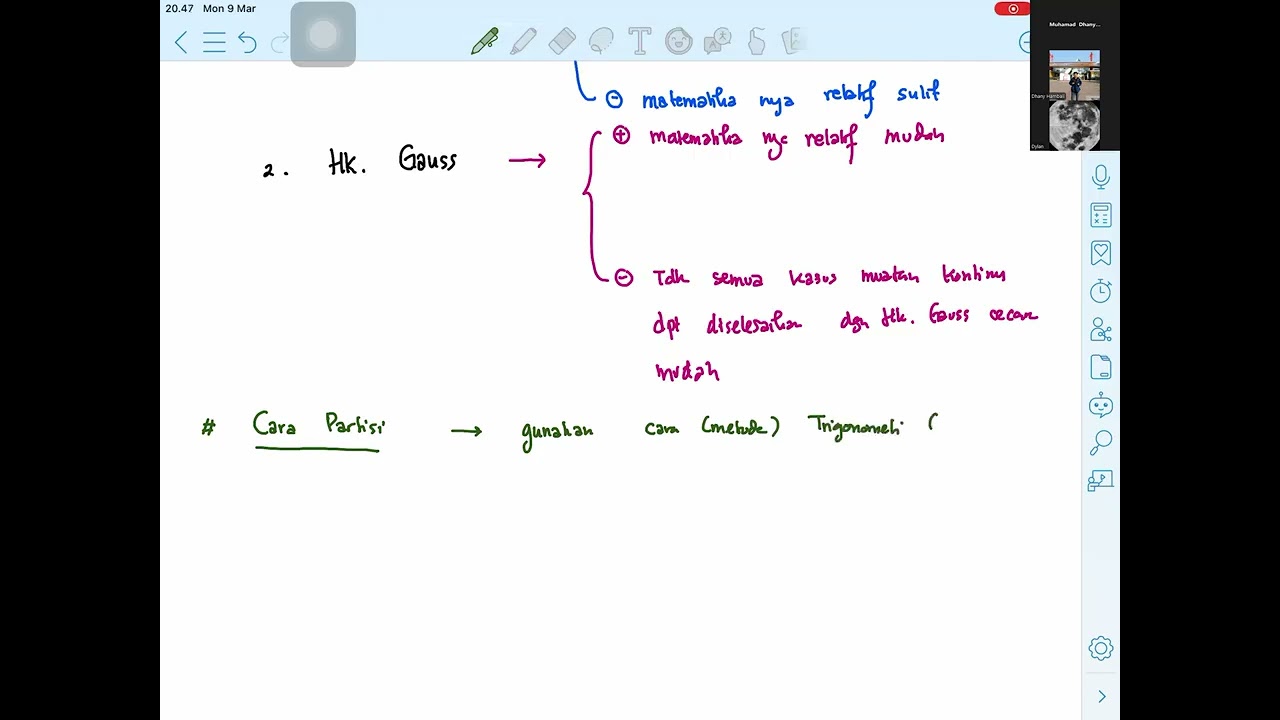 20.47 Mon 9 Mar
Muhamad Dhany...
Dhany Hambali
Dylan
⊖ matematika nya relatif sulit
⊕ matematika nya relatif mudah
2. Hk. Gauss →
⊖ Tdk semua kasus muatan kontinu
dpt diselesaikan dgn Hk. Gauss secara
mudah
# Cara Partisi → gunakan cara (metode) Trigonometri (